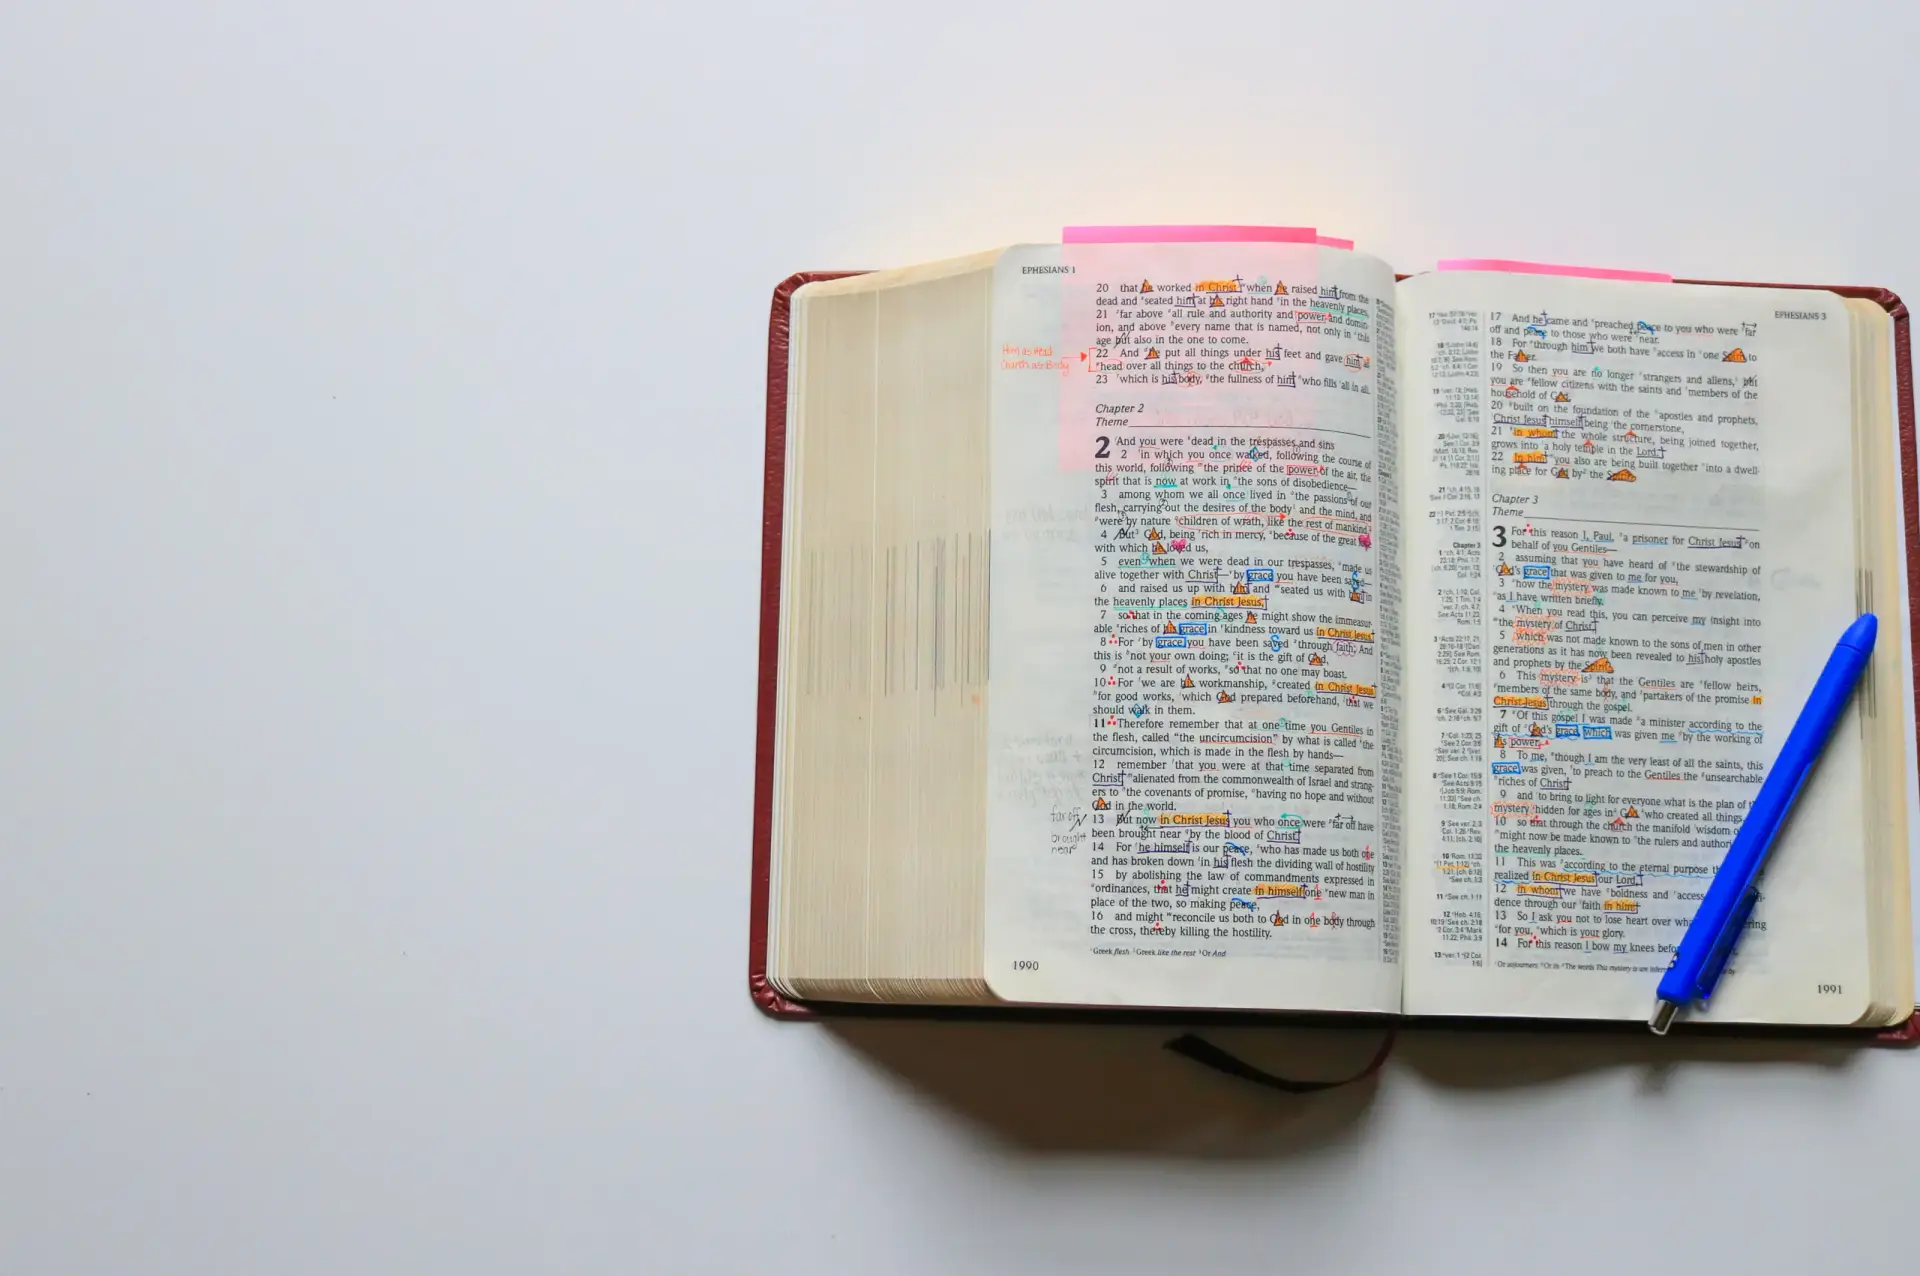 EPHESIANS 1
20 that he worked in Christ when he raised him from the
dead and seated him at his right hand in the heavenly places,
21 far above all rule and authority and power and domin-
ion, and above every name that is named, not only in this
age but also in the one to come.
22 And he put all things under his feet and gave him as
head over all things to the church,
23 which is his body, the fullness of him who fills all in all.
Him as Head
Church as Body
Chapter 2
Theme
2 And you were dead in the trespasses and sins
2 in which you once walked, following the course of
this world, following the prince of the power of the air, the
spirit that is now at work in the sons of disobedience—
3 among whom we all once lived in the passions of our
flesh, carrying out the desires of the body and the mind, and
were by nature children of wrath, like the rest of mankind.
4 But God, being rich in mercy, because of the great love
with which he loved us,
5 even when we were dead in our trespasses, made us
alive together with Christ—by grace you have been saved—
6 and raised us up with him and seated us with him in
the heavenly places in Christ Jesus,
7 so that in the coming ages he might show the immeasur-
able riches of his grace in kindness toward us in Christ Jesus.
8 For by grace you have been saved through faith. And
this is not your own doing; it is the gift of God,
9 not a result of works, so that no one may boast.
10 For we are his workmanship, created in Christ Jesus
for good works, which God prepared beforehand, that we
should walk in them.
11 Therefore remember that at one time you Gentiles in
the flesh, called "the uncircumcision" by what is called the
circumcision, which is made in the flesh by hands—
12 remember that you were at that time separated from
Christ, alienated from the commonwealth of Israel and strang-
ers to the covenants of promise, having no hope and without
God in the world.
13 But now in Christ Jesus you who once were far off have
been brought near by the blood of Christ.
far off
brought
near
14 For he himself is our peace, who has made us both one
and has broken down in his flesh the dividing wall of hostility
15 by abolishing the law of commandments expressed in
ordinances, that he might create in himself one new man in
place of the two, so making peace,
16 and might reconcile us both to God in one body through
the cross, thereby killing the hostility.
Greek flesh Greek like the rest Or And
1990
EPHESIANS 3
17 And he came and preached peace to you who were far
off and peace to those who were near.
18 For through him we both have access in one Spirit to
the Father.
19 So then you are no longer strangers and aliens, but
you are fellow citizens with the saints and members of the
household of God,
20 built on the foundation of the apostles and prophets,
Christ Jesus himself being the cornerstone,
21 in whom the whole structure, being joined together,
grows into a holy temple in the Lord.
22 In him you also are being built together into a dwell-
ing place for God by the Spirit.
Chapter 3
Theme
3 For this reason I, Paul, a prisoner for Christ Jesus on
behalf of you Gentiles—
2 assuming that you have heard of the stewardship of
God's grace that was given to me for you,
3 how the mystery was made known to me by revelation,
as I have written briefly.
4 When you read this, you can perceive my insight into
the mystery of Christ,
5 which was not made known to the sons of men in other
generations as it has now been revealed to his holy apostles
and prophets by the Spirit.
6 This mystery is that the Gentiles are fellow heirs,
members of the same body, and partakers of the promise in
Christ Jesus through the gospel.
7 Of this gospel I was made a minister according to the
gift of God's grace, which was given me by the working of
his power.
8 To me, though I am the very least of all the saints, this
grace was given, to preach to the Gentiles the unsearchable
riches of Christ,
9 and to bring to light for everyone what is the plan of
mystery hidden for ages in God who created all things,
10 so that through the church the manifold wisdom
might now be made known to the rulers and
the heavenly places.
11 This was according to the eternal purpose
realized in Christ Jesus our Lord,
12 in whom we have boldness and access
dence through our faith in him.
13 So I ask you not to lose heart over
for you, which is your glory.
14 For this reason I bow my knees
Or sojourners Or in The words This mystery is are
1991